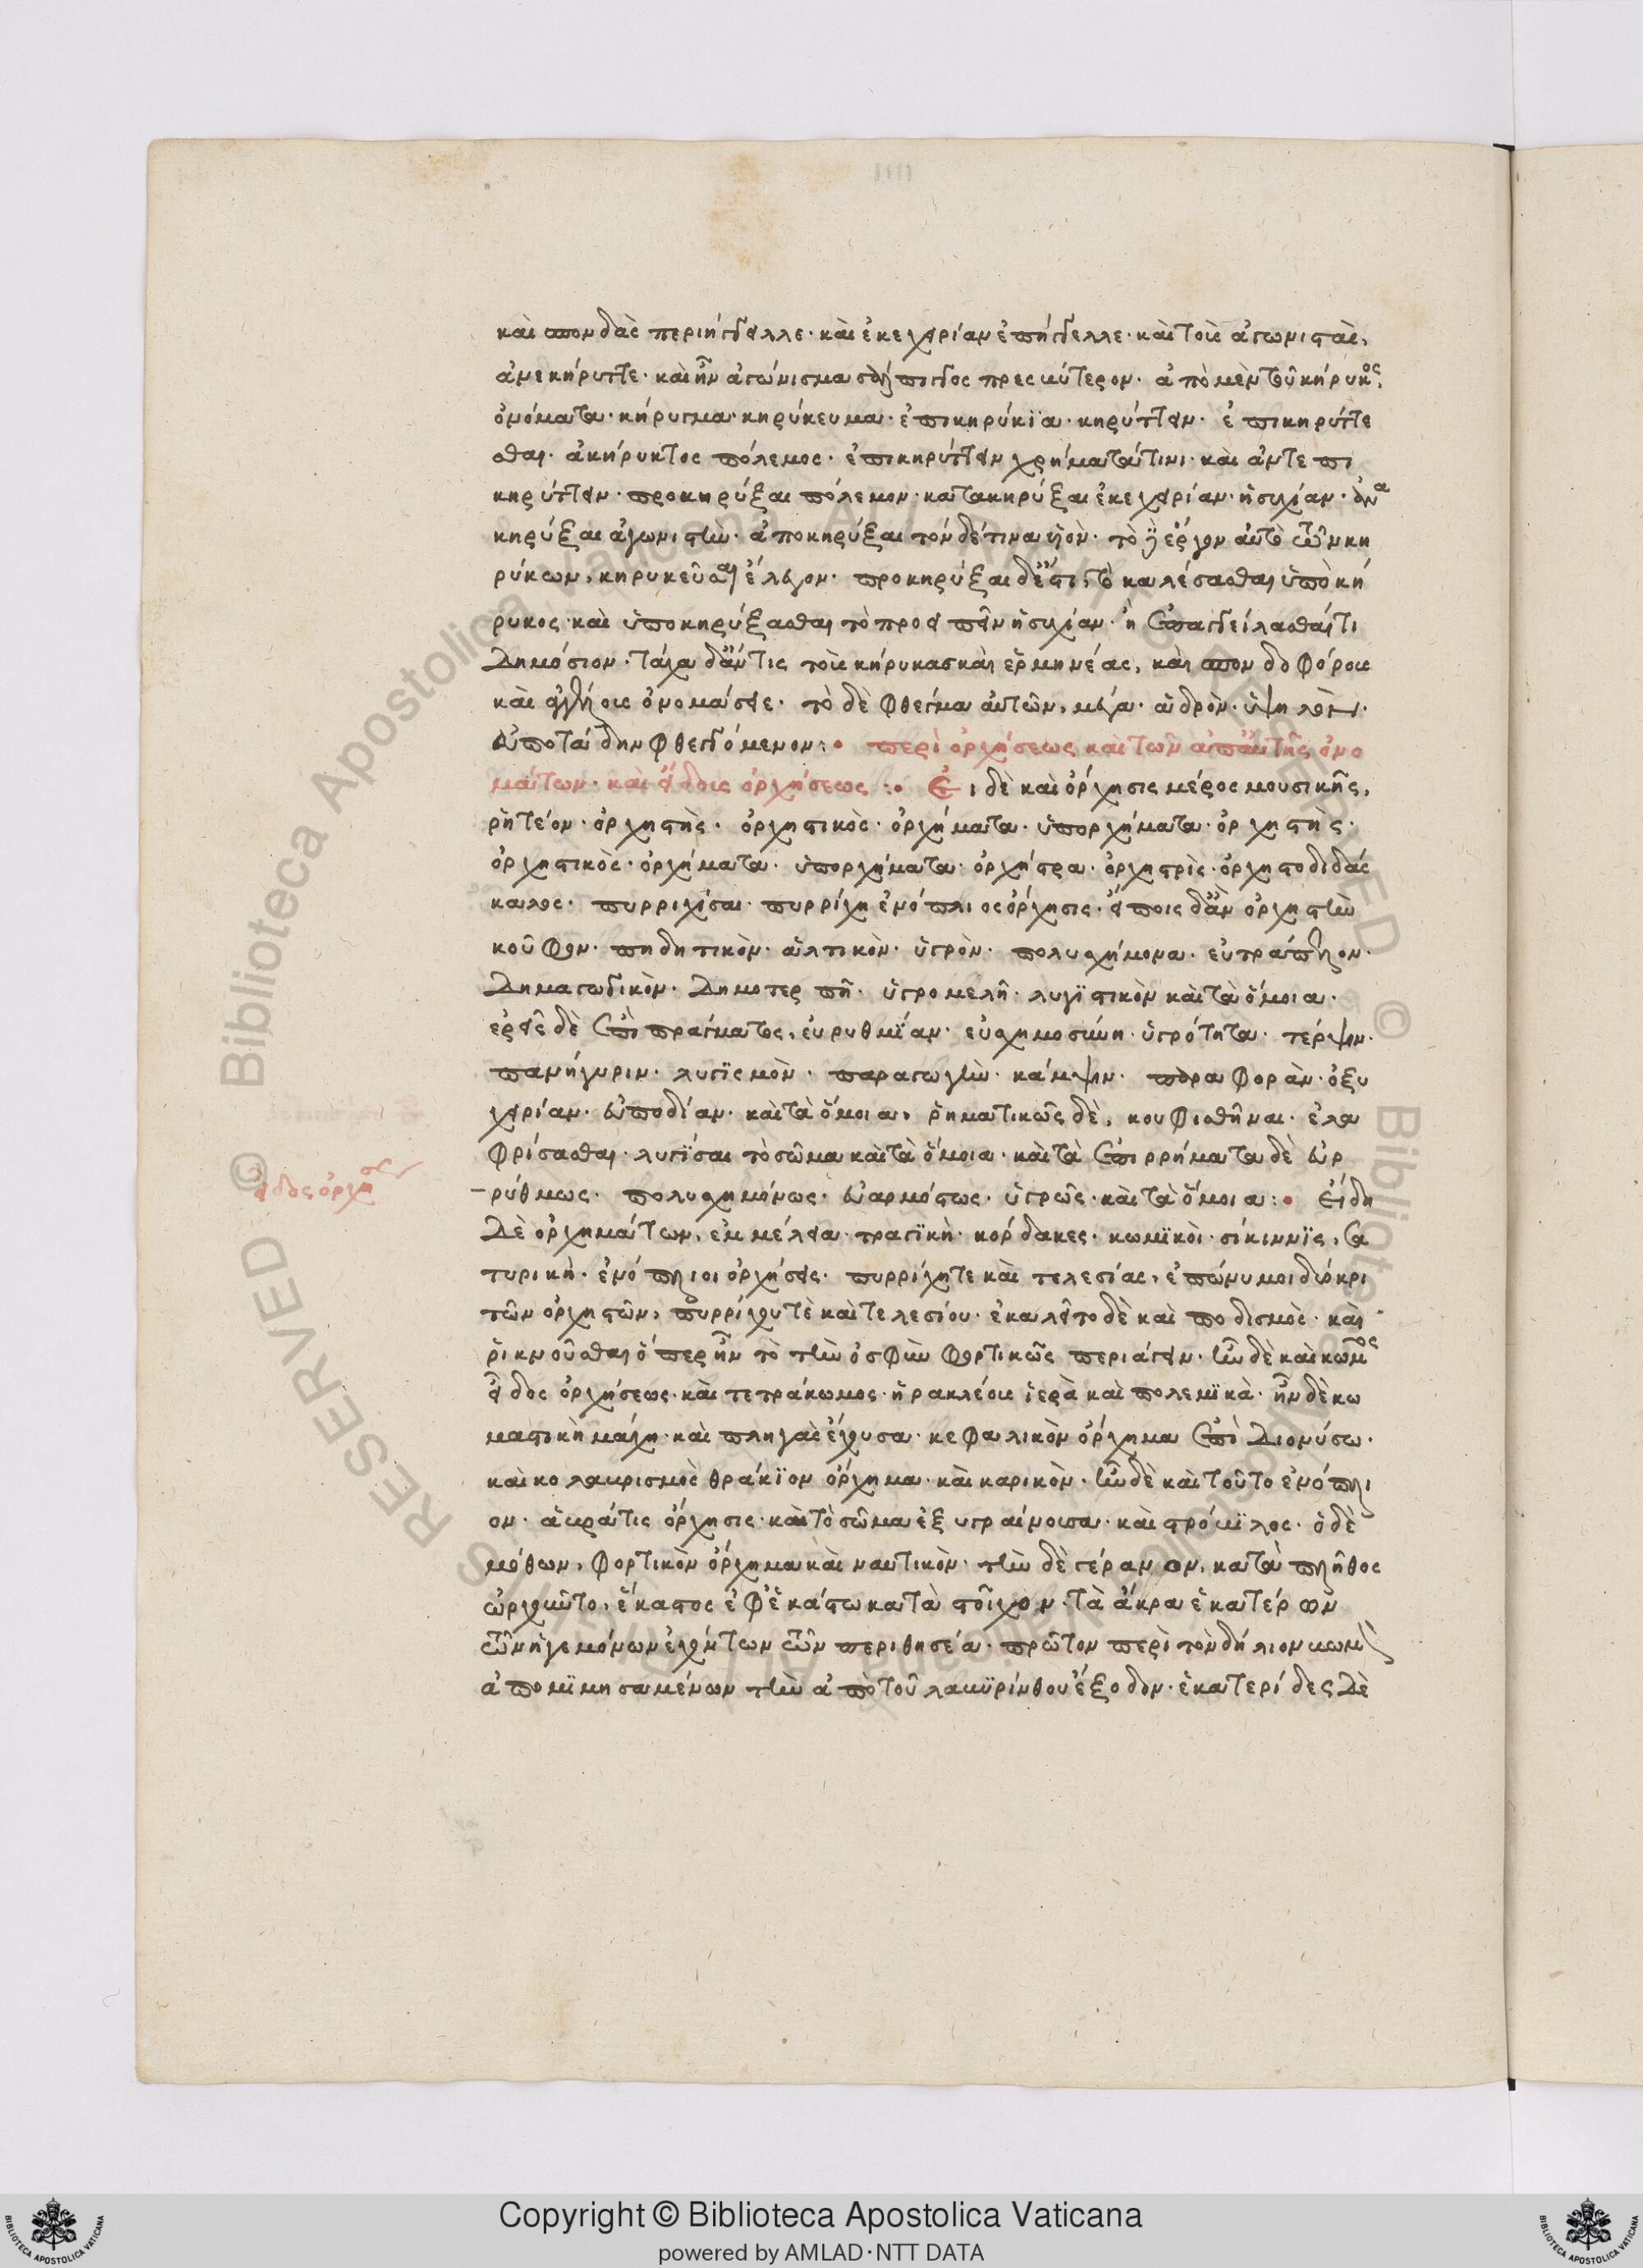 καὶ σπονδὰς περιήγγελλε· καὶ ἐκεχειρίαν ἐπήγγελλε· καὶ τοὺς ἀγωνιστὰς,
ἀνεκήρυττε· καὶ ἦν ἀγώνισμα πρεσβύτερον· ἀπὸ μὲν τοῦ κήρυκος,
ὀνόματα· κήρυγμα· κηρύκευμα· ἐπικηρύκϊα· κηρύττειν· ἐπικηρύττε
σθαι· ἀκήρυκτος πόλεμος· ἐπικηρύττειν χρήματά τινι· καὶ ἀντεπι
κηρύττειν· προκηρύξαι πόλεμον· κατακηρύξαι ἐκεχειρίαν· ἡσυχίαν· ἀνα
κηρύξαι ἀγωνιστὴν· ἀποκηρύξαι τὸν δέτινα υἱὸν· τὸ γὰρ ἔργον αὐτὸ τῶν κη
ρύκων, κηρυκεῦσαι ἔλεγον· προκηρύξαι δέ ἐστι, τὸ καλέσασθαι ὑπὸ κή
ρυκος· καὶ ὑποκηρύξασθαι τὸ προσειπεῖν ἡσυχίαν· ἢ ἐπαγγείλασθαί τι
δημόσιον· τάχα δ' ἄν τις τοὺς κήρυκας καὶ ἑρμηνέας, καὶ σπονδοφόρους
καὶ ἀγγέλους ὀνομάσειε· τὸ δὲ φθέγμα αὐτῶν, μέγα· ἁδρὸν· ὑψηλὸν·
εὐποτάδην φθεγγόμενον:· περὶ ὀρχήσεως καὶ τῶν ἀπ' αὐτῆς ὀνο
μάτων· καὶ εἴδους ὀρχήσεως:· Ἐπὶ δὲ καὶ ὄρχησις μέρος μουσικῆς,
ῥητέον· ὀρχηστὴς· ὀρχηστικὸς· ὀρχήματα· ὑπορχήματα· ὀρχηστὴς·
ὀρχηστικὸς· ὀρχήματα· ὑπορχήματα· ὀρχήστρα· ὀρχηστρὶς· ὀρχηστοδιδάσ
καλος· πυρριχίσαι· πυρρίχη ἐνόπλιος ὄρχησις· εἴποις δ' ἂν ὀρχηστὴν
κοῦφον· πηδητικὸν· ἁλτικὸν· ὑγρὸν· πολυσχήμονα· εὐτράπελον·
δημαγωγικὸν· δημοτερπῆ· ὑγρομελῆ· λυγϊστικὸν καὶ τὰ ὅμοια·
ἐρεῖς δὲ ἐπὶ πράγματος, εὐρυθμΐαν· εὐσχημοσύνη· ὑγρότητα· τέρψιν·
πανήγυριν· λυγϊσμὸν· παραγωγὴν· κάμψιν· παραφορὰν· ὀξυ
χειρίαν· εὐποδίαν· καὶ τὰ ὅμοια, ῥηματικῶς δὲ, κουφισθῆναι· ἐλα
φρίσασθαι· λυγΐσαι τὸ σῶμα καὶ τὰ ὅμοια· καὶ τὰ ἐπιρρήματα δὲ εὐρ
ρύθμως· πολυσχημόνως· εὐαρμόστως· ὑγρῶς· καὶ τὰ ὅμοια:· εἴδη
εἶδος ὀρχήσεως
δὲ ὀρχημάτων, ἐμμέλεια· τραγϊκὴ· κόρδακες· κωμϊκοὶ· σίκιννϊς, σα
τυρικὴ· ἐνόπλιοι ὀρχήσεις· πυρρίχη τε καὶ τελεσίας, ἐπώνυμοι δύο κρι
τῶν ὀρχηστῶν, πυρρίχου τὲ καὶ τελεσίου· ἐκαλεῖτο δὲ καὶ ποδισμὸς· καὶ
ῥικνοῦσθαι ὅπερ ἦν τὸ τὴν ὀσφὺν φορτικῶς περιάγειν· ἦν δὲ καὶ κῶμος
εἶδος ὀρχήσεως· καὶ τετράκωμος· ἡρακλέους ἱερὰ καὶ πολεμϊκὰ· ἦν δὲ κω
μαστικὴ μάχη· καὶ πληγὰς ἔχουσα· κεφαλικὸν ὄρχημα ἐπὶ Διονύσω·
καὶ κολαβρισμὸς θράκϊον ὄρχημα· καὶ καρικὸν· ἦν δὲ καὶ τοῦτο ἐνόπλι
ον· ἀβράτις ὄρχησις· καὶ τὸ σῶμα ἐξυγραίνουσα· καὶ στρόβϊλος· ὁ δὲ
μόθων, φορτικὸν ὄρχημα καὶ ναυτικὸν· τὴν δὲ γέρανον, κατὰ πλῆθος
ὠρχοῦντο, ἕκαστος ἐφ' ἑκάστω κατὰ στοῖχον· τὰ ἄκρα ἑκατέρων
τῶν ἡγεμόνων ἐχόντων τῶν περὶ θησέα· πρῶτον περὶ τὸν δήλιον βωμὸν
ἀπομϊμησαμένων τὴν ἀπὸ τοῦ λαβϋρίνθου ἔξοδον· ἑκατερίδες δὲ
Copyright © Biblioteca Apostolica Vaticana
powered by AMLAD·NTT DATA